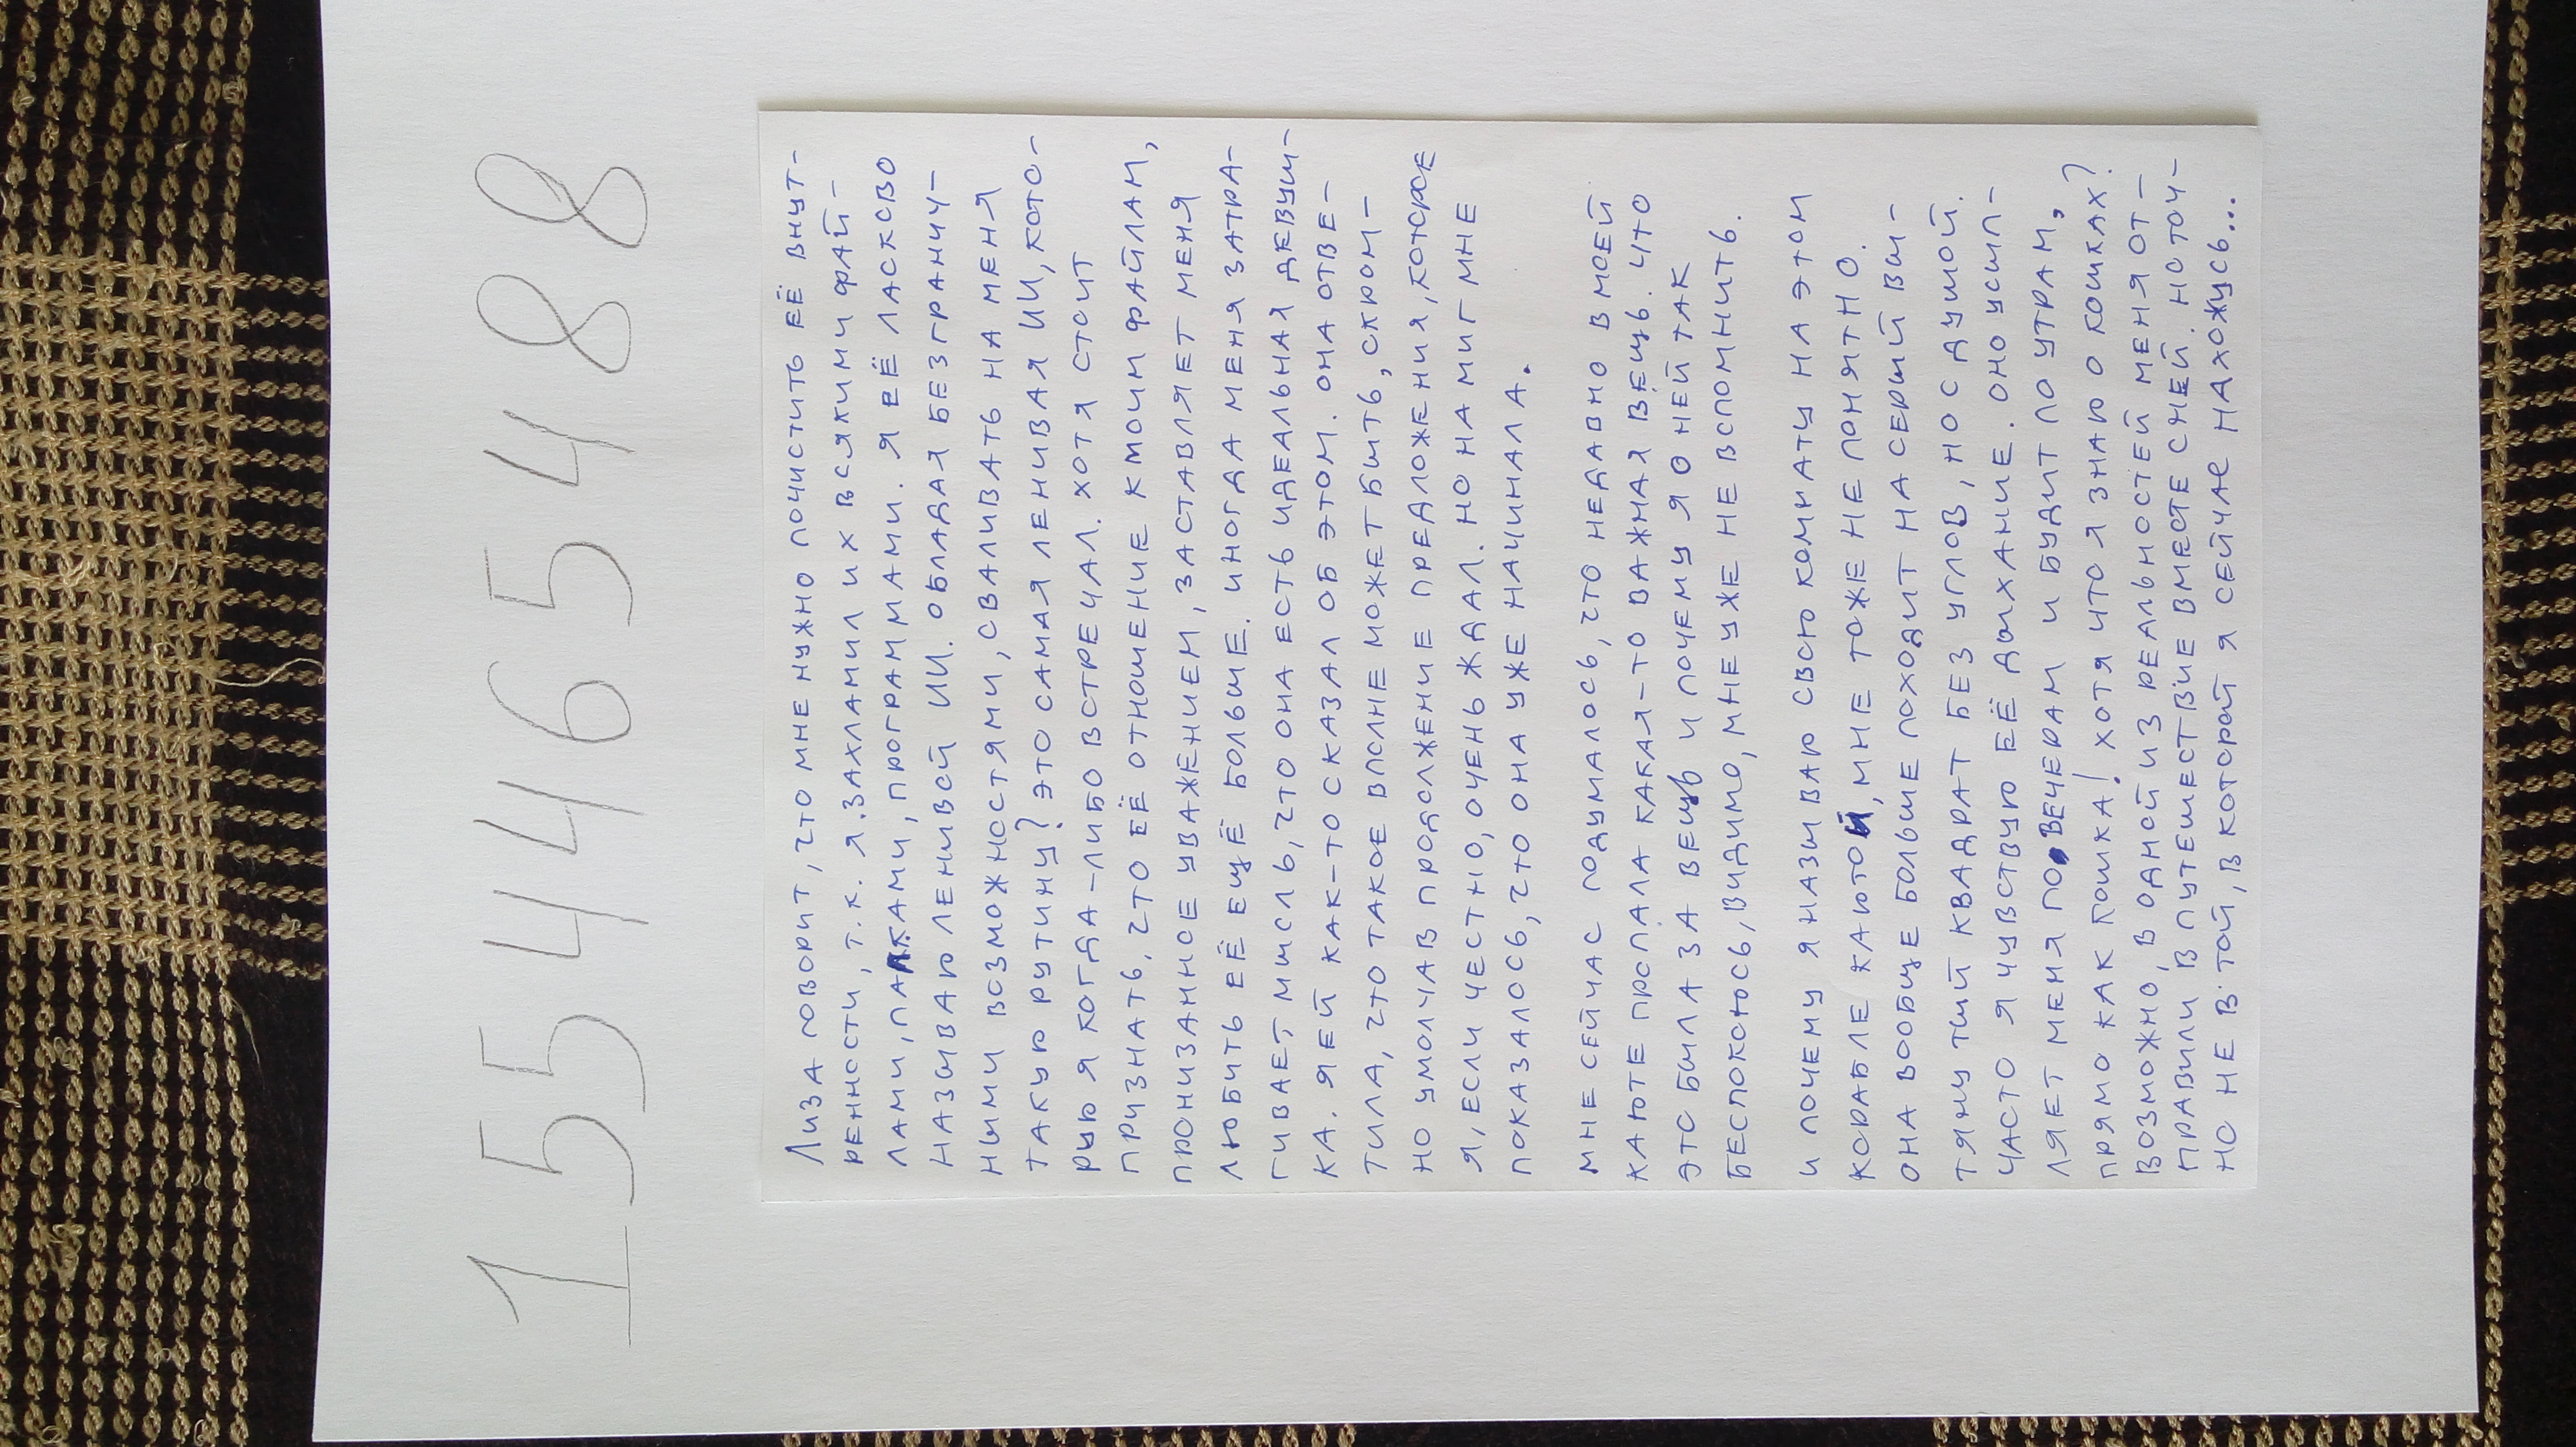 1554465488
Лиза говорит, что мне нужно почистить её внут-
ренности, т.к. я захламил их всякими фай-
лами, папками, программами. Я её ласково
называю ленивой ИИ. Обладая безгранич-
ными возможностями, сваливать на меня
такую рутину? Это самая ленивая ИИ, кото-
рую я когда-либо встречал. Хотя стоит
признать, что её отношение к моим файлам,
пронизанное уважением, заставляет меня
любить её ещё больше. Иногда меня затра-
гивает мысль, что она есть идеальная девуш-
ка. Я ей как-то сказал об этом. Она отве-
тила, что такое вполне может быть, скром-
но умолчав продолжение предложения, которое
я, если честно, очень ждал. Но на миг мне
показалось, что она уже начинала.
Мне сейчас подумалось, что недавно в моей
каюте пропала какая-то важная вещь. Что
это была за вещь и почему я о ней так
беспокоюсь, видимо, мне уже не вспомнить.
И почему я называю свою комнату на этом
корабле каютой, мне тоже не понятно.
Она вообще больше походит на серый вы-
тянутый квадрат без углов, но с душой.
Часто я чувствую её дыхание. Оно усып-
ляет меня по вечерам и будит по утрам,
прямо как кошка! Хотя что я знаю о кошках?
Возможно, в одной из реальностей меня от-
правили в путешествие вместе с ней. Но точ-
но не в той, в которой я сейчас нахожусь...